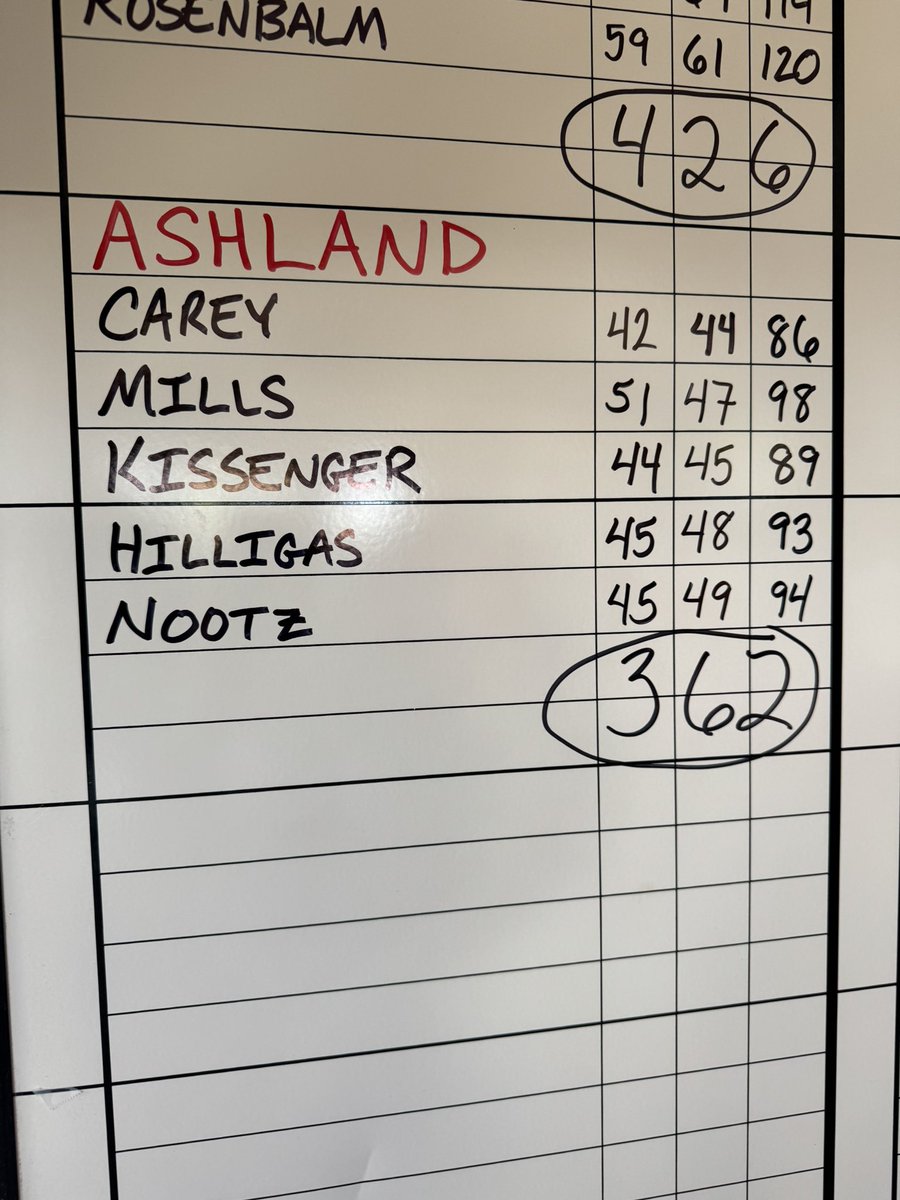 119
ROSENBALM 59 61 120
426
ASHLAND
CAREY 42 44 86
MILLS 51 47 98
KISSENGER 44 45 89
HILLIGAS 45 48 93
NOOTZ 45 49 94
362